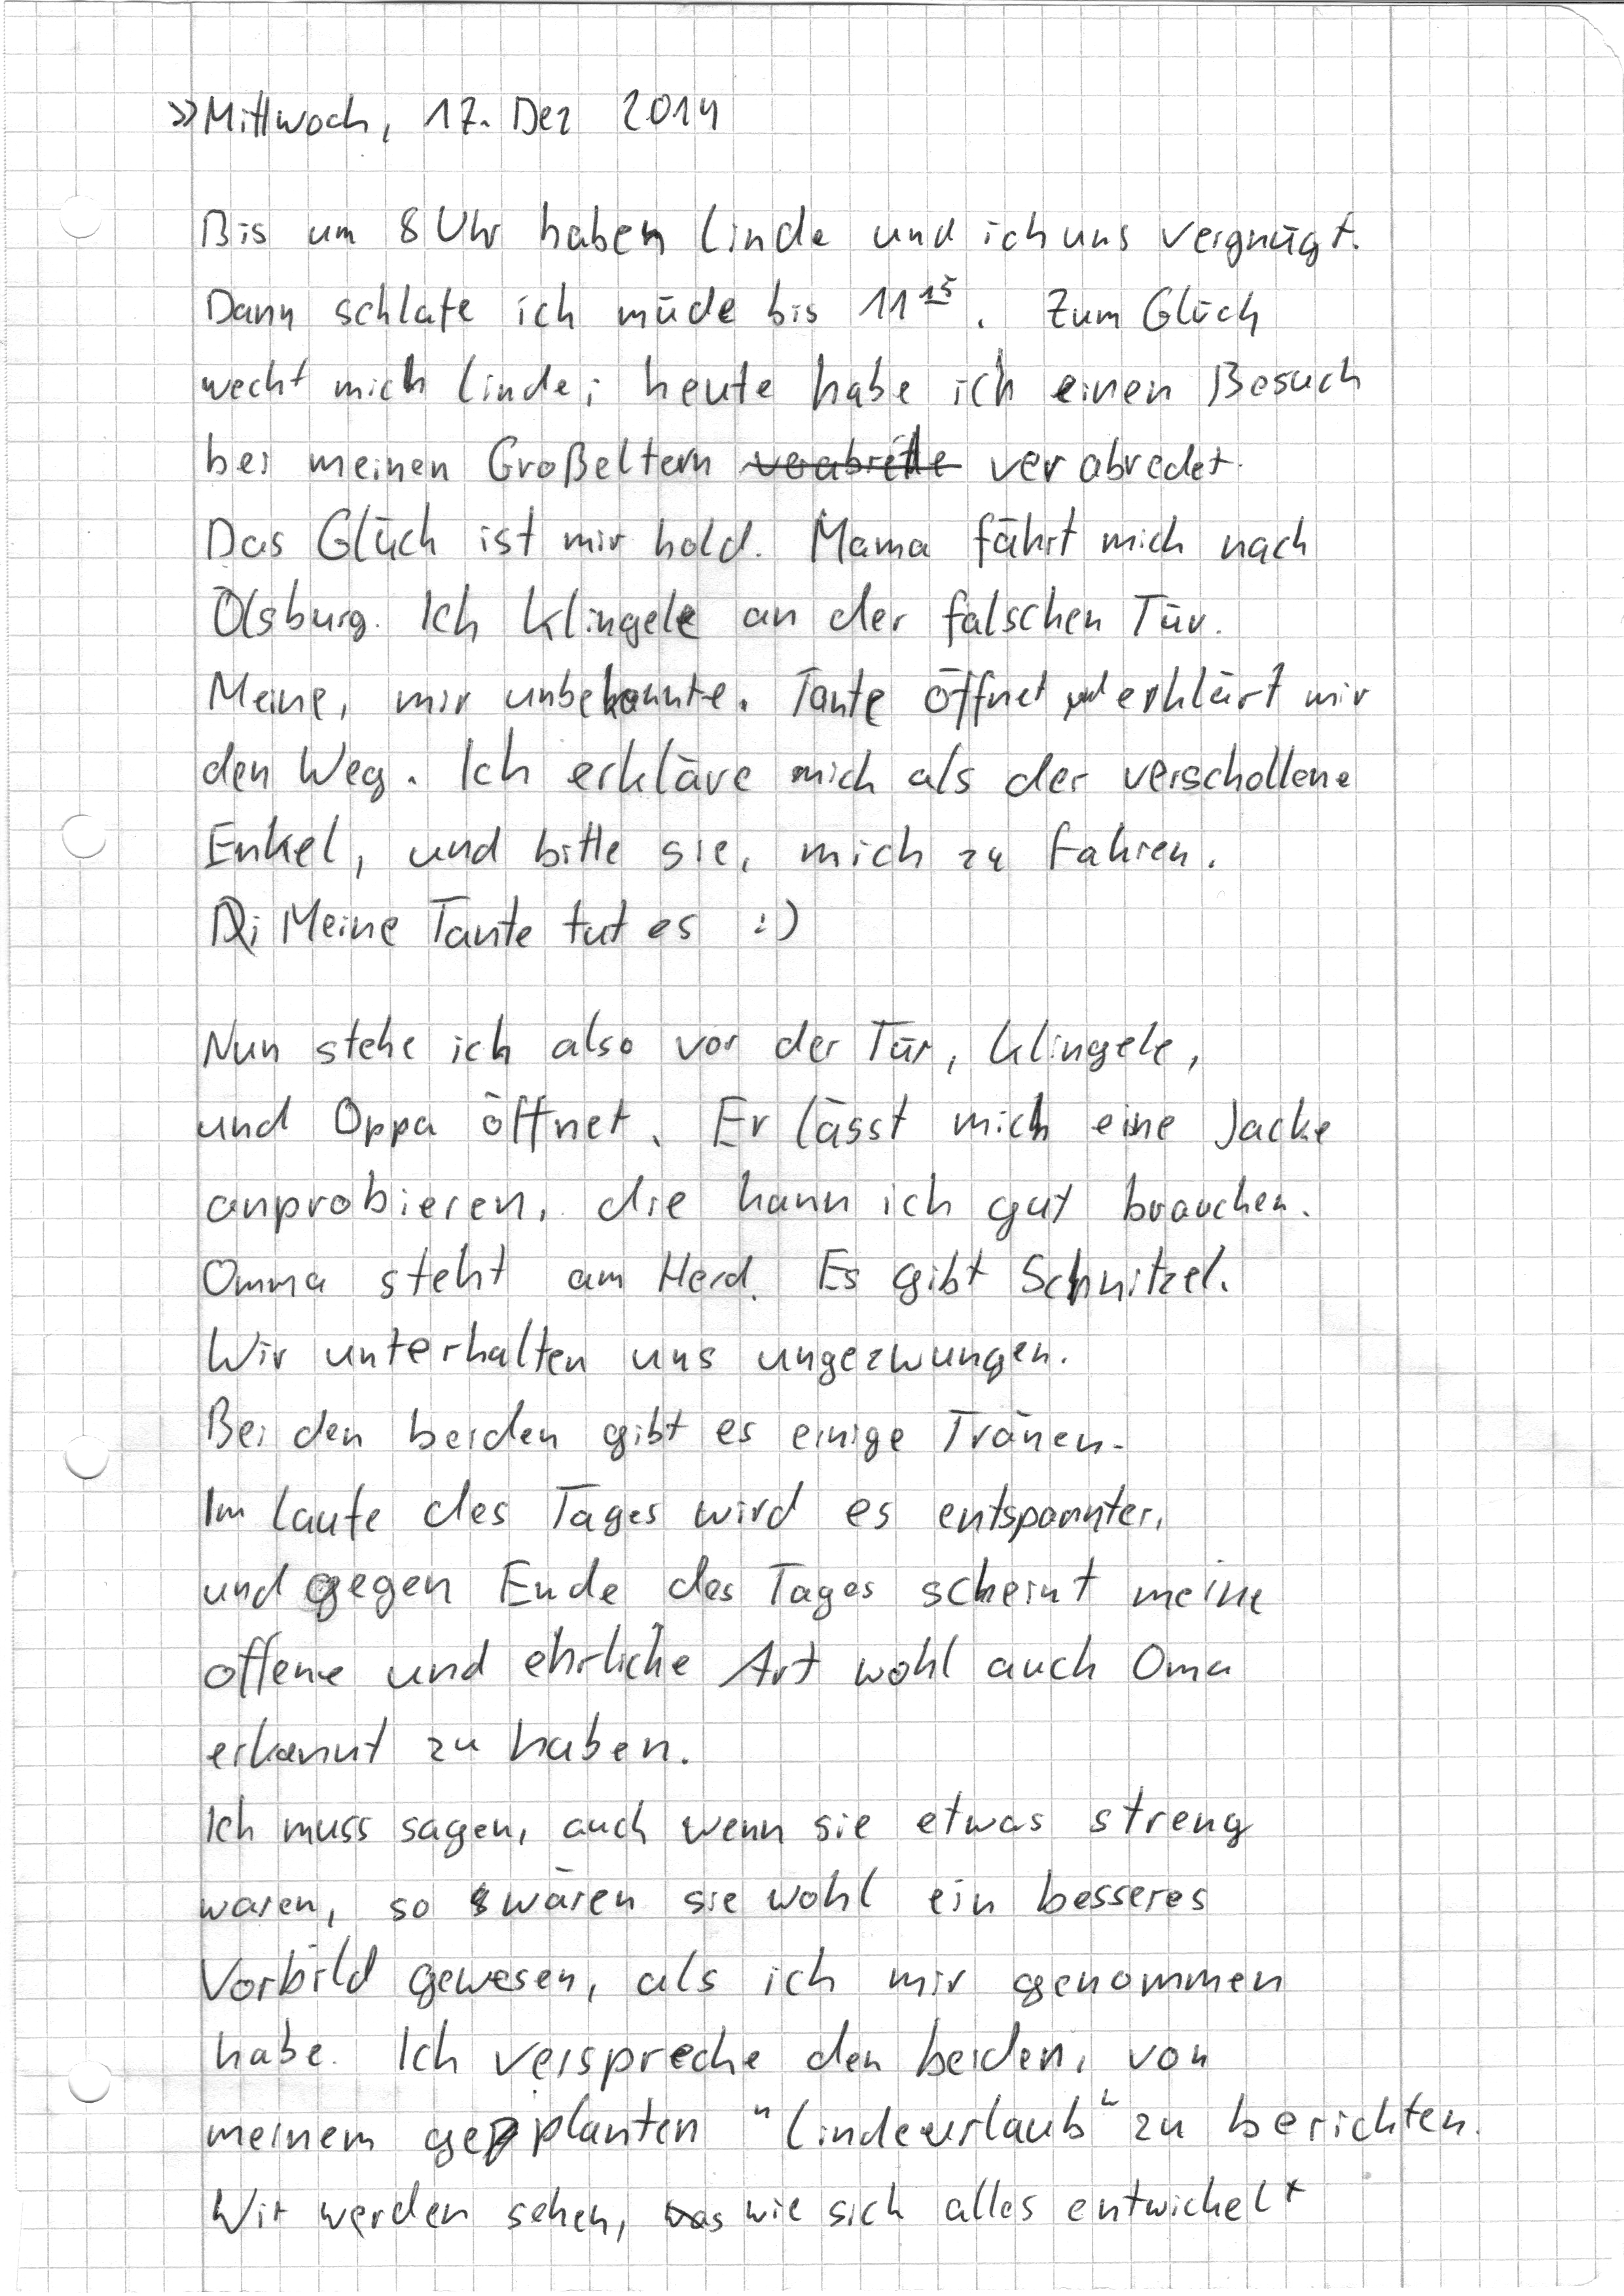 »Mittwoch, 17. Dez 2014
Bis um 8 Uhr haben Linde und ich uns vergnügt.
Dann schlafe ich müde bis 11¹⁵. Zum Glück
weckt mich Linde; heute habe ich einen Besuch
bei meinen Großeltern verabredet.
Das Glück ist mir hold. Mama fährt mich nach
Ölsburg. Ich klingele an der falschen Tür.
Meine, mir unbekannte, Tante öffnet und erklärt mir
den Weg. Ich erkläre mich als der verschollene
Enkel, und bitte sie, mich zu fahren.
Di Meine Tante tut es :)
Nun stehe ich also vor der Tür, klingele,
und Oppa öffnet. Er lässt mich eine Jacke
anprobieren, die kann ich gut brauchen.
Omma steht am Herd. Es gibt Schnitzel.
Wir unterhalten uns ungezwungen.
Bei den beiden gibt es einige Tränen.
Im Laufe des Tages wird es entspannter,
und gegen Ende des Tages scheint meine
offene und ehrliche Art wohl auch Oma
erkannt zu haben.
Ich muss sagen, auch wenn sie etwas streng
waren, so wären sie wohl ein besseres
Vorbild gewesen, als ich mir genommen
habe. Ich verspreche den beiden, von
meinem geplanten "Lindeurlaub" zu berichten.
Wir werden sehen, was wie sich alles entwickelt